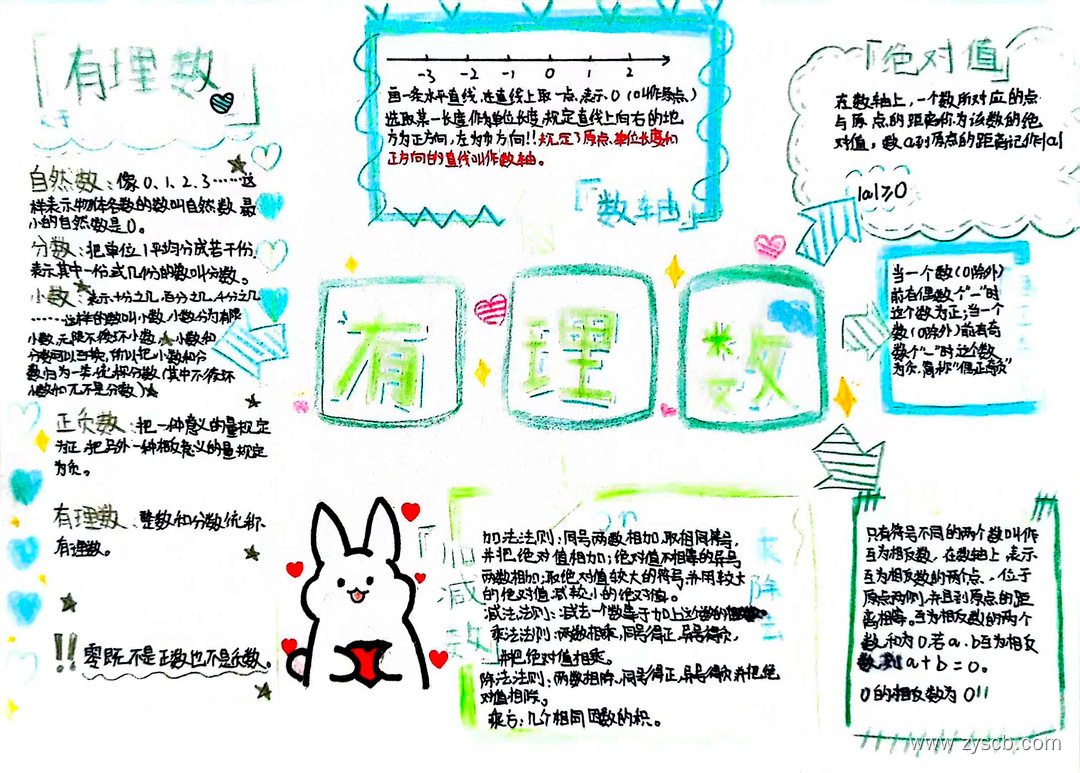 有理数
自然数：像0、1、2、3……这
样表示物体名数的数叫自然数最
小的自然数是0。
分数：把单位1平均分成若干份，
表示其中一份或几份的数叫分数。
小数：表示十分之几，百分之几，千分之几
……这样的数叫小数，小数分为有限
小数，无限不循环小数，小数和
分数可以互换，所以把小数和分
数归为一类，统称分数（其中不循环
小数和π不是分数）
正负数：把一种意义的量规定
为正，把另外一种相反意义的量规定
为负。
有理数、整数和分数统称
有理数。
!! 零既不是正数也不是负数。
-3 -2 -1 0 1 2
画一条水平直线，在直线上取一点、表示0（叫作原点）
选取某一长度作为单位长度，规定直线上向右的地
方为正方向，左为负方向!!规定了原点、单位长度和
正方向的直线叫作数轴。
「数轴」
「绝对值」
在数轴上，一个数所对应的点
与原点的距离称为该数的绝
对值，数a到原点的距离记作|a|
|a|≥0
有理数
当一个数（0除外）
前有偶数个“-”时
这个数为正；当一个
数（0除外）前有奇
数个“-”时这个数
为负，简称“偶正奇负”
「加
减
乘
除
加法法则：同号两数相加，取相同符号，
并把绝对值相加；绝对值不相等的异号
两数相加；取绝对值较大的符号并用较大
的绝对值减较小的绝对值。
减法法则：减去一个数等于加上这个数的
乘法法则：两数相乘，同号得正，异号得负，
并把绝对值相乘。
除法法则：两数相除，同号得正，异号得负并把绝
对值相除。
乘方：几个相同因数的积。
只有符号不同的两个数叫作
互为相反数，在数轴上，表示
互为相反数的两个点、位于
原点两侧，并且到原点的距
离相等。互为相反数的两个
数和为0。若a、b互为相反
数则a+b=0。
0的相反数为0!!
www.zyscb.com